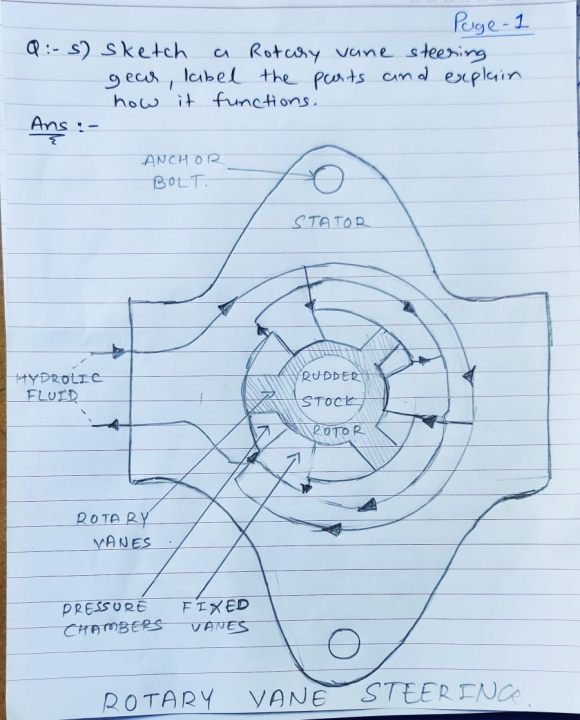 Page-1
Q:- 5) Sketch a Rotary vane steering
gear, label the parts and explain
how it functions.
Ans :-
ANCHOR
BOLT.
STATOR
HYDROLIC
FLUID
RUDDER
STOCK
ROTOR
ROTARY
VANES
PRESSURE
CHAMBERS
FIXED
VANES
ROTARY VANE STEERING.